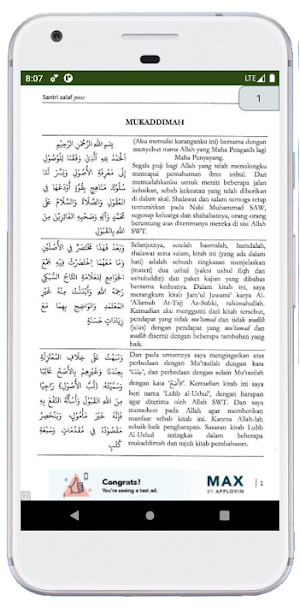 8:07
LTE
Santri salaf press
1
MUKADDIMAH
بِسْمِ اللهِ الرَّحْمٰنِ الرَّحِيْمِ
اَلْحَمْدُ لِلّٰهِ الَّذِيْ وَفَّقَنَا لِلْوُصُوْلِ
إِلَى مَعْرِفَةِ الْأُصُوْلِ وَيَسَّرَ لَنَا
سُلُوْكَ مَنَاهِجَ بِقُوَّةٍ أَوْدَعَهَا فِي
الْعُقُوْلِ وَالصَّلَاةُ وَالسَّلَامُ عَلَى
مُحَمَّدٍ وَآلِهِ وَصَحْبِهِ الْفَائِزِيْنَ مِنَ
اللهِ بِالْقَبُوْلِ
(Aku memulai karanganku ini) bersama dengan
menyebut nama Allah yang Maha Pengasih lagi
Maha Penyayang.
Segala puji bagi Allah yang telah menolongku
mencapai pemahaman ilmu ushul. Dan
memudahkanku untuk meniti beberapa jalan
kebaikan, sebab kekuatan yang telah diberikan
di dalam akal. Shalawat dan salam semoga tetap
tercurahkan pada Nabi Muhammad SAW,
segenap keluarga dan shahabatnya, orang-orang
beruntung atas diterimanya mereka di sisi Allah
SWT.
وَبَعْدُ فَهٰذَا مُخْتَصَرٌ فِي الْأَصْلَيْنِ
وَمَا مَعَهُمَا اخْتَصَرْتُ فِيْهِ جَمْعَ
الْجَوَامِعِ لِلْعَلَّامَةِ التَّاجِ السُّبْكِيِّ
رَحِمَهُ اللهُ وَأَبْدَلْتُ مِنْهُ غَيْرَ
الْمُعْتَمَدِ وَالْوَاضِحِ بِهِمَا مَعَ
زِيَادَاتٍ حَسَنَةٍ
Selanjutnya, setelah basmalah, hamdalah,
shalawat serta salam, kitab ini (yang ada dalam
hati) adalah sebuah ringkasan menjelaskan
(materi) dua ushul (yakni ushul fiqh dan
ushuluddin) dan paket kajian yang dibahas
bersama keduanya. Dalam kitab ini, saya
merangkum kitab Jam'ul Jawami' karya Al-
'Allamah At-Taj As-Subki, rahimahullah.
Kemudian aku mengganti dari kitab tersebut,
pendapat yang tidak mu'tamad dan tidak wadlih
(jelas) dengan pendapat yang mu'tamad dan
wadlih disertai dengan beberapa tambahan yang
baik.
وَنَبَّهْتُ عَلَى خِلَافِ الْمُعْتَزِلَةِ
بِعِنْدَنَا وَغَيْرِهِمْ بِالْأَصَحِّ غَالِبًا
وَسَمَّيْتُهُ: (لُبَّ الْأُصُوْلِ) رَاجِيًا
مِنَ اللهِ الْقَبُوْلَ، وَأَسْأَلُهُ النَّفْعَ بِهِ
فَإِنَّهُ خَيْرُ مَأْمُوْلٍ، وَيَنْحَصِرُ
مَقْصُوْدُهُ فِي مُقَدِّمَاتٍ وَسَبْعَةِ
كُتُبٍ
Dan pada umumnya saya mengingatkan atas
perbedaan dengan Mu'tazilah dengan kata
عِنْدَنَا, dan perbedaan dengan selain Mu'tazilah
dengan kata 'الْأَصَحُّ'. Kemudian kitab ini saya
beri nama 'Lubb al-Ushul', dengan harapan
agar diterima oleh Allah SWT. Dan saya
memohon pada Allah agar memberikan
manfaat sebab kitab ini. Karena Allah-lah
sebaik-baik pengharapan. Sasaran kitab Lubb
Al-Ushul teringkas dalam beberapa
mukaddimah dan tujuh kitab pembahasan.
Congrats!
You're seeing a test ad.
MAX
BY APPLOVIN
| 1